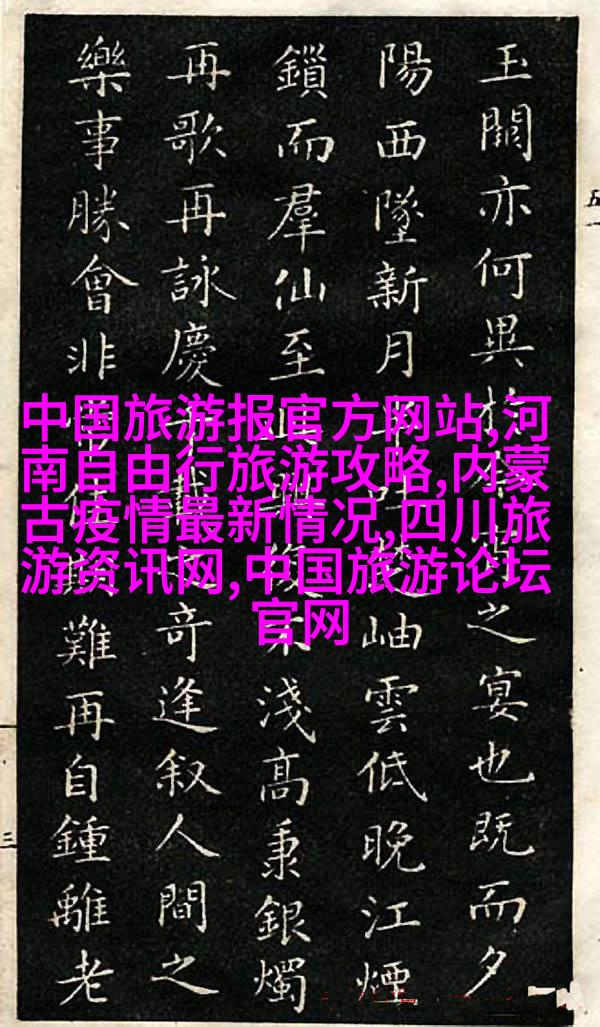 玉闕亦何異之宴也既而夕
陽西墜新月岫雲低晚江煙
鎖而羣仙至淺高秉銀燭
再歌再詠慶奇逢叙人間之
樂事勝會非難再自鍾離老
中国旅游报官方网站,河
南自由行旅游攻略,内蒙
古疫情最新情况,四川旅
游资讯网,中国旅游论坛
官网
三